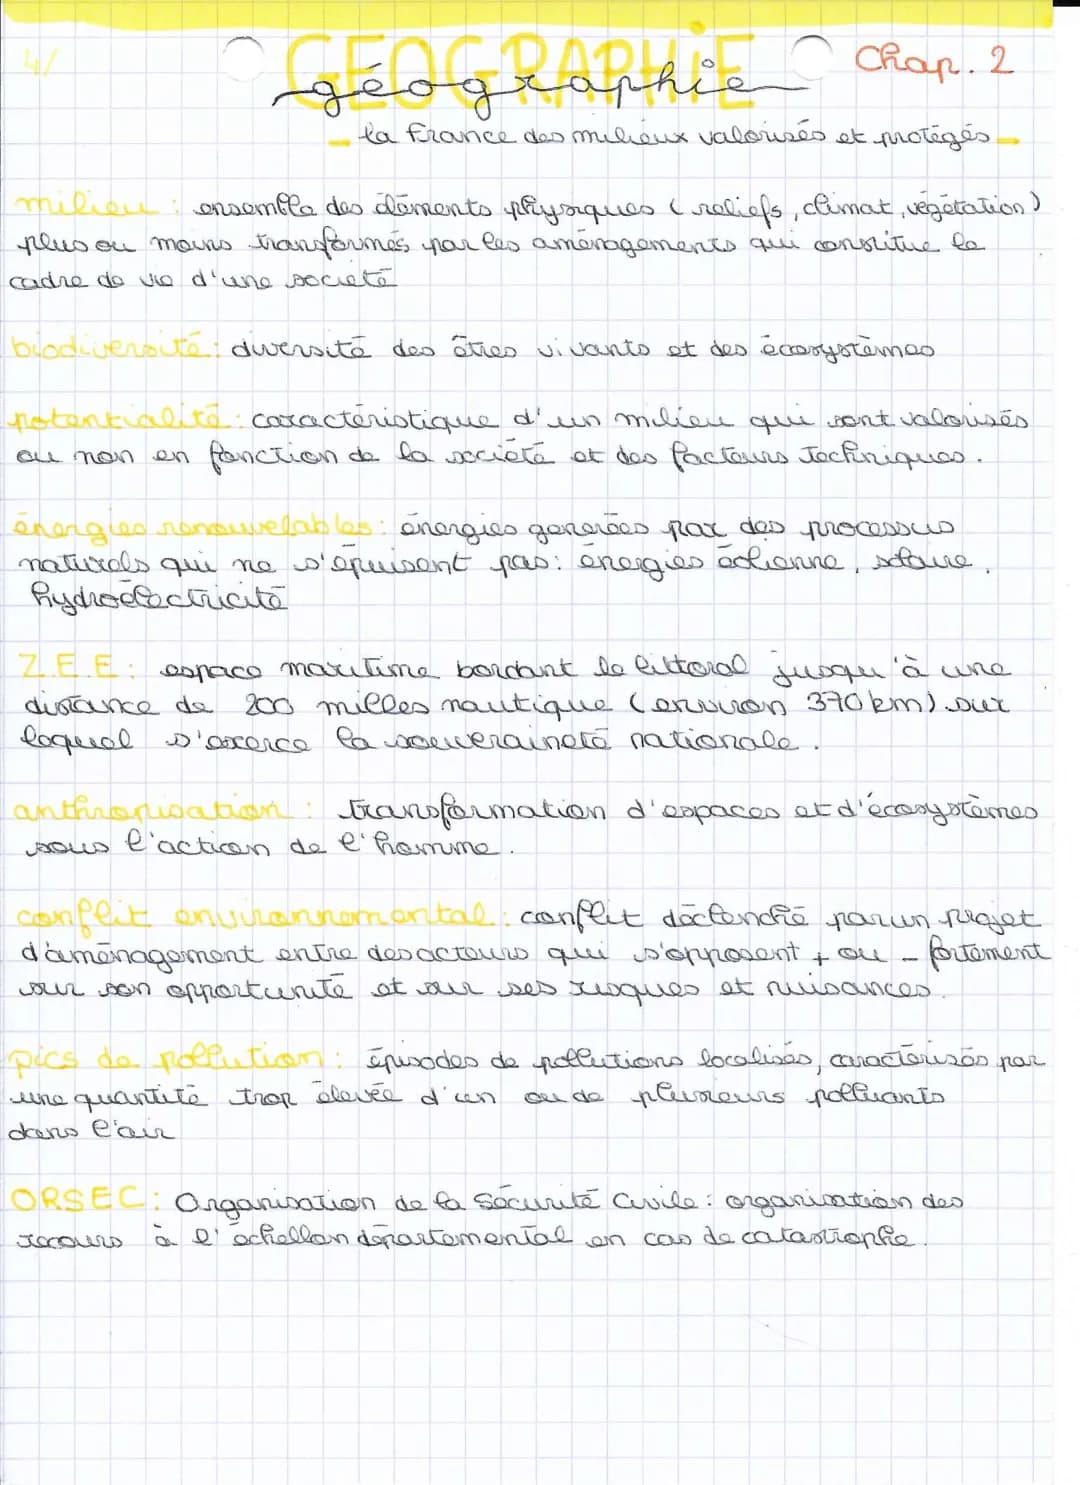 4/
GEOGRAPHIE
géographie
Chap. 2
- la France des milieux valorisés et protégés -
milieu : ensemble des éléments physiques (reliefs, climat, végétation)
plus ou moins transformés par les aménagements qui constitue le
cadre de vie d'une societé
biodiversité : diversité des êtres vivants et des écosystèmes
potentialité : caractéristique d'un milieu qui sont valorisés
ou non en fonction de la société et des facteurs techniques.
énergies renouvelables : énergies generées par des processus
naturels qui ne s'épuisent pas : énergies éolienne, solaire,
hydroélectricité
Z.E.E : espace maritime bordant le littoral jusqu'à une
distance de 200 milles nautique (environ 370 km) sur
lequel s'exerce la souveraineté nationale.
anthropisation : transformation d'espaces et d'écosystèmes
sous l'action de l'homme.
conflit environnemental : conflit déclenché par un projet
d'aménagement entre des acteurs qui s'opposent + ou - fortement
sur son opportunité et sur ses risques et nuisances.
pics de pollution : épisodes de pollutions localisés, caractérisés par
une quantité trop élevée d'un ou de plusieurs polluants
dans l'air
ORSEC : Organisation de la Sécurité Civile : organisation des
secours à l'échellon départemental en cas de catastrophe.